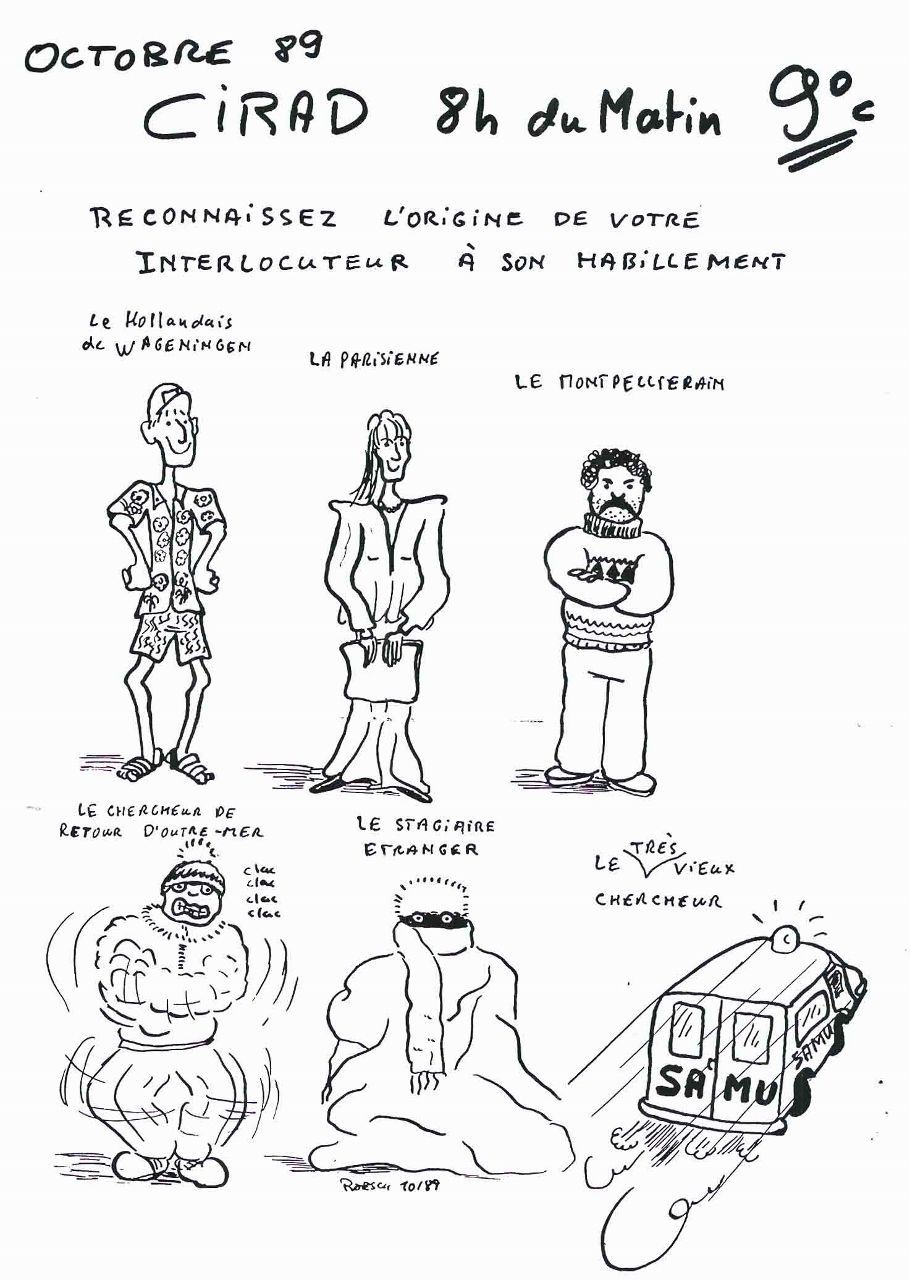 OCTOBRE 89
CIRAD 8h du Matin 9°C
RECONNAISSEZ L'ORIGINE DE VOTRE
INTERLOCUTEUR À SON HABILLEMENT
Le Hollandais
de WAGENINGEN
LA PARISIENNE
LE MONTPELLIERAIN
LE CHERCHEUR DE
RETOUR D'OUTRE-MER
clac
clac
clac
clac
LE STAGIAIRE
ETRANGER
LE TRÈS VIEUX
CHERCHEUR
SAMU
SAMU
10/89